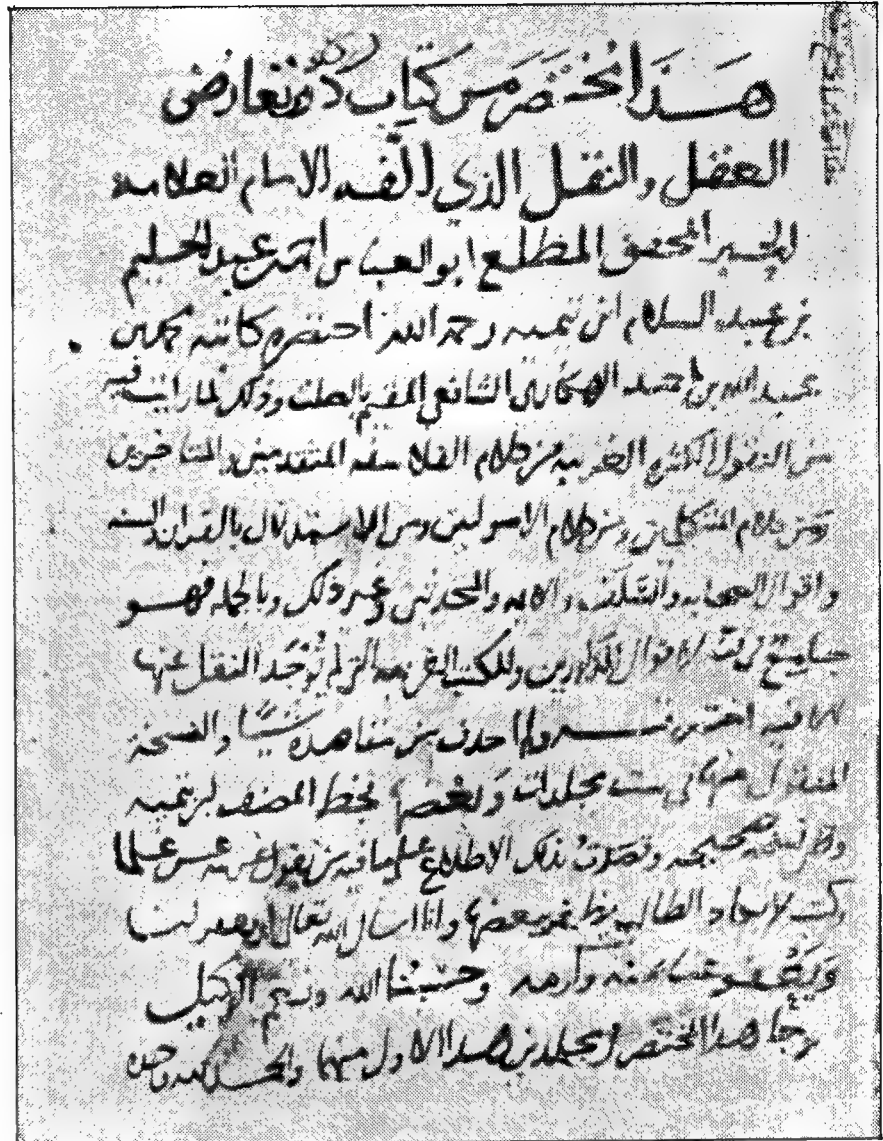 هذا مختصر من كتاب درء تعارض
العقل والنقل الذي ألفه الامام العلامة
الحبر المحقق المطلع ابو العباس احمد بن عبد الحليم
بن عبد السلام ابن تيميه رحمه الله اختصره كاتبه محمد بن
عبد الله بن احمد الهكاري الشافعي المقيم بالصلت وذلك لما رايت فيه
من النقول الكثيره الغريبه من كلام الفلاسفه المتقدمين والمتاخرين
ومن كلام المتكلمين ومن كلام الاصوليين ومن الاستدلال بالقران والسنه
واقوال الصحابه والسلف والايمه والمحدثين وغير ذلك وبالجمله فهو
جامع لاقوال المذكورين وللكتب الغريبه التي لم يوجد النقل عنها
فيه ولم احذف من مقاصده شيئا والنسخة
المنقول منها في ست مجلدات وبعضها بخط المصنف ابن تيميه
صحيحه وقصدت بذلك الاطلاع على ما فيه من نقول غريبه
الطالب يظفر ببعضها وانا اسال الله تعالى ان يغفر لنا
ويعفو عنا بمنه وكرمه وحسبنا الله ونعم الوكيل
وجا هذا المختصر في مجلدين هذا الاول منهما والحمد لله وحده